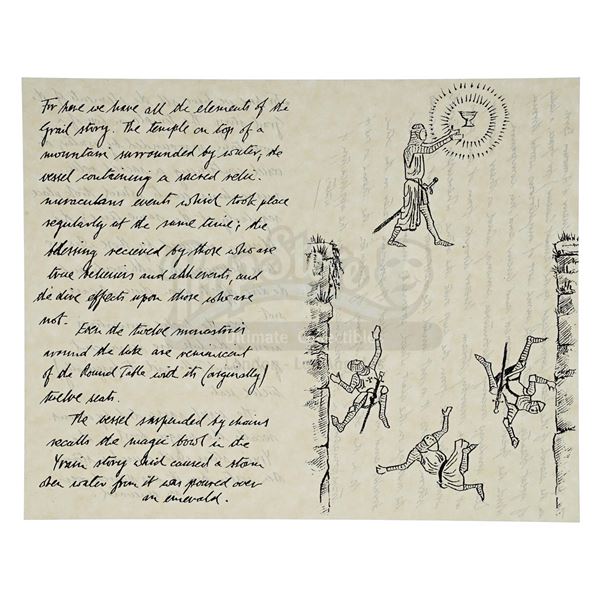 For here we have all the elements of the
Grail story. The temple on top of a
mountain surrounded by water, the
vessel containing a sacred relic.
muraculans events which took place
regularly at the same time; the
blessing recieved by those who are
true believers and adherents, and
the dire effects upon those who are
not.
Even the twelve monasteries
around the lake are reminiscent
of the Round Table with its (originally)
twelve seats.
The vessel suspended by chains
recalls the magic bowl in the
Yvain story which caused a storm
when water from it was poured over
an emerald.
Store
Ultimate Collectibles